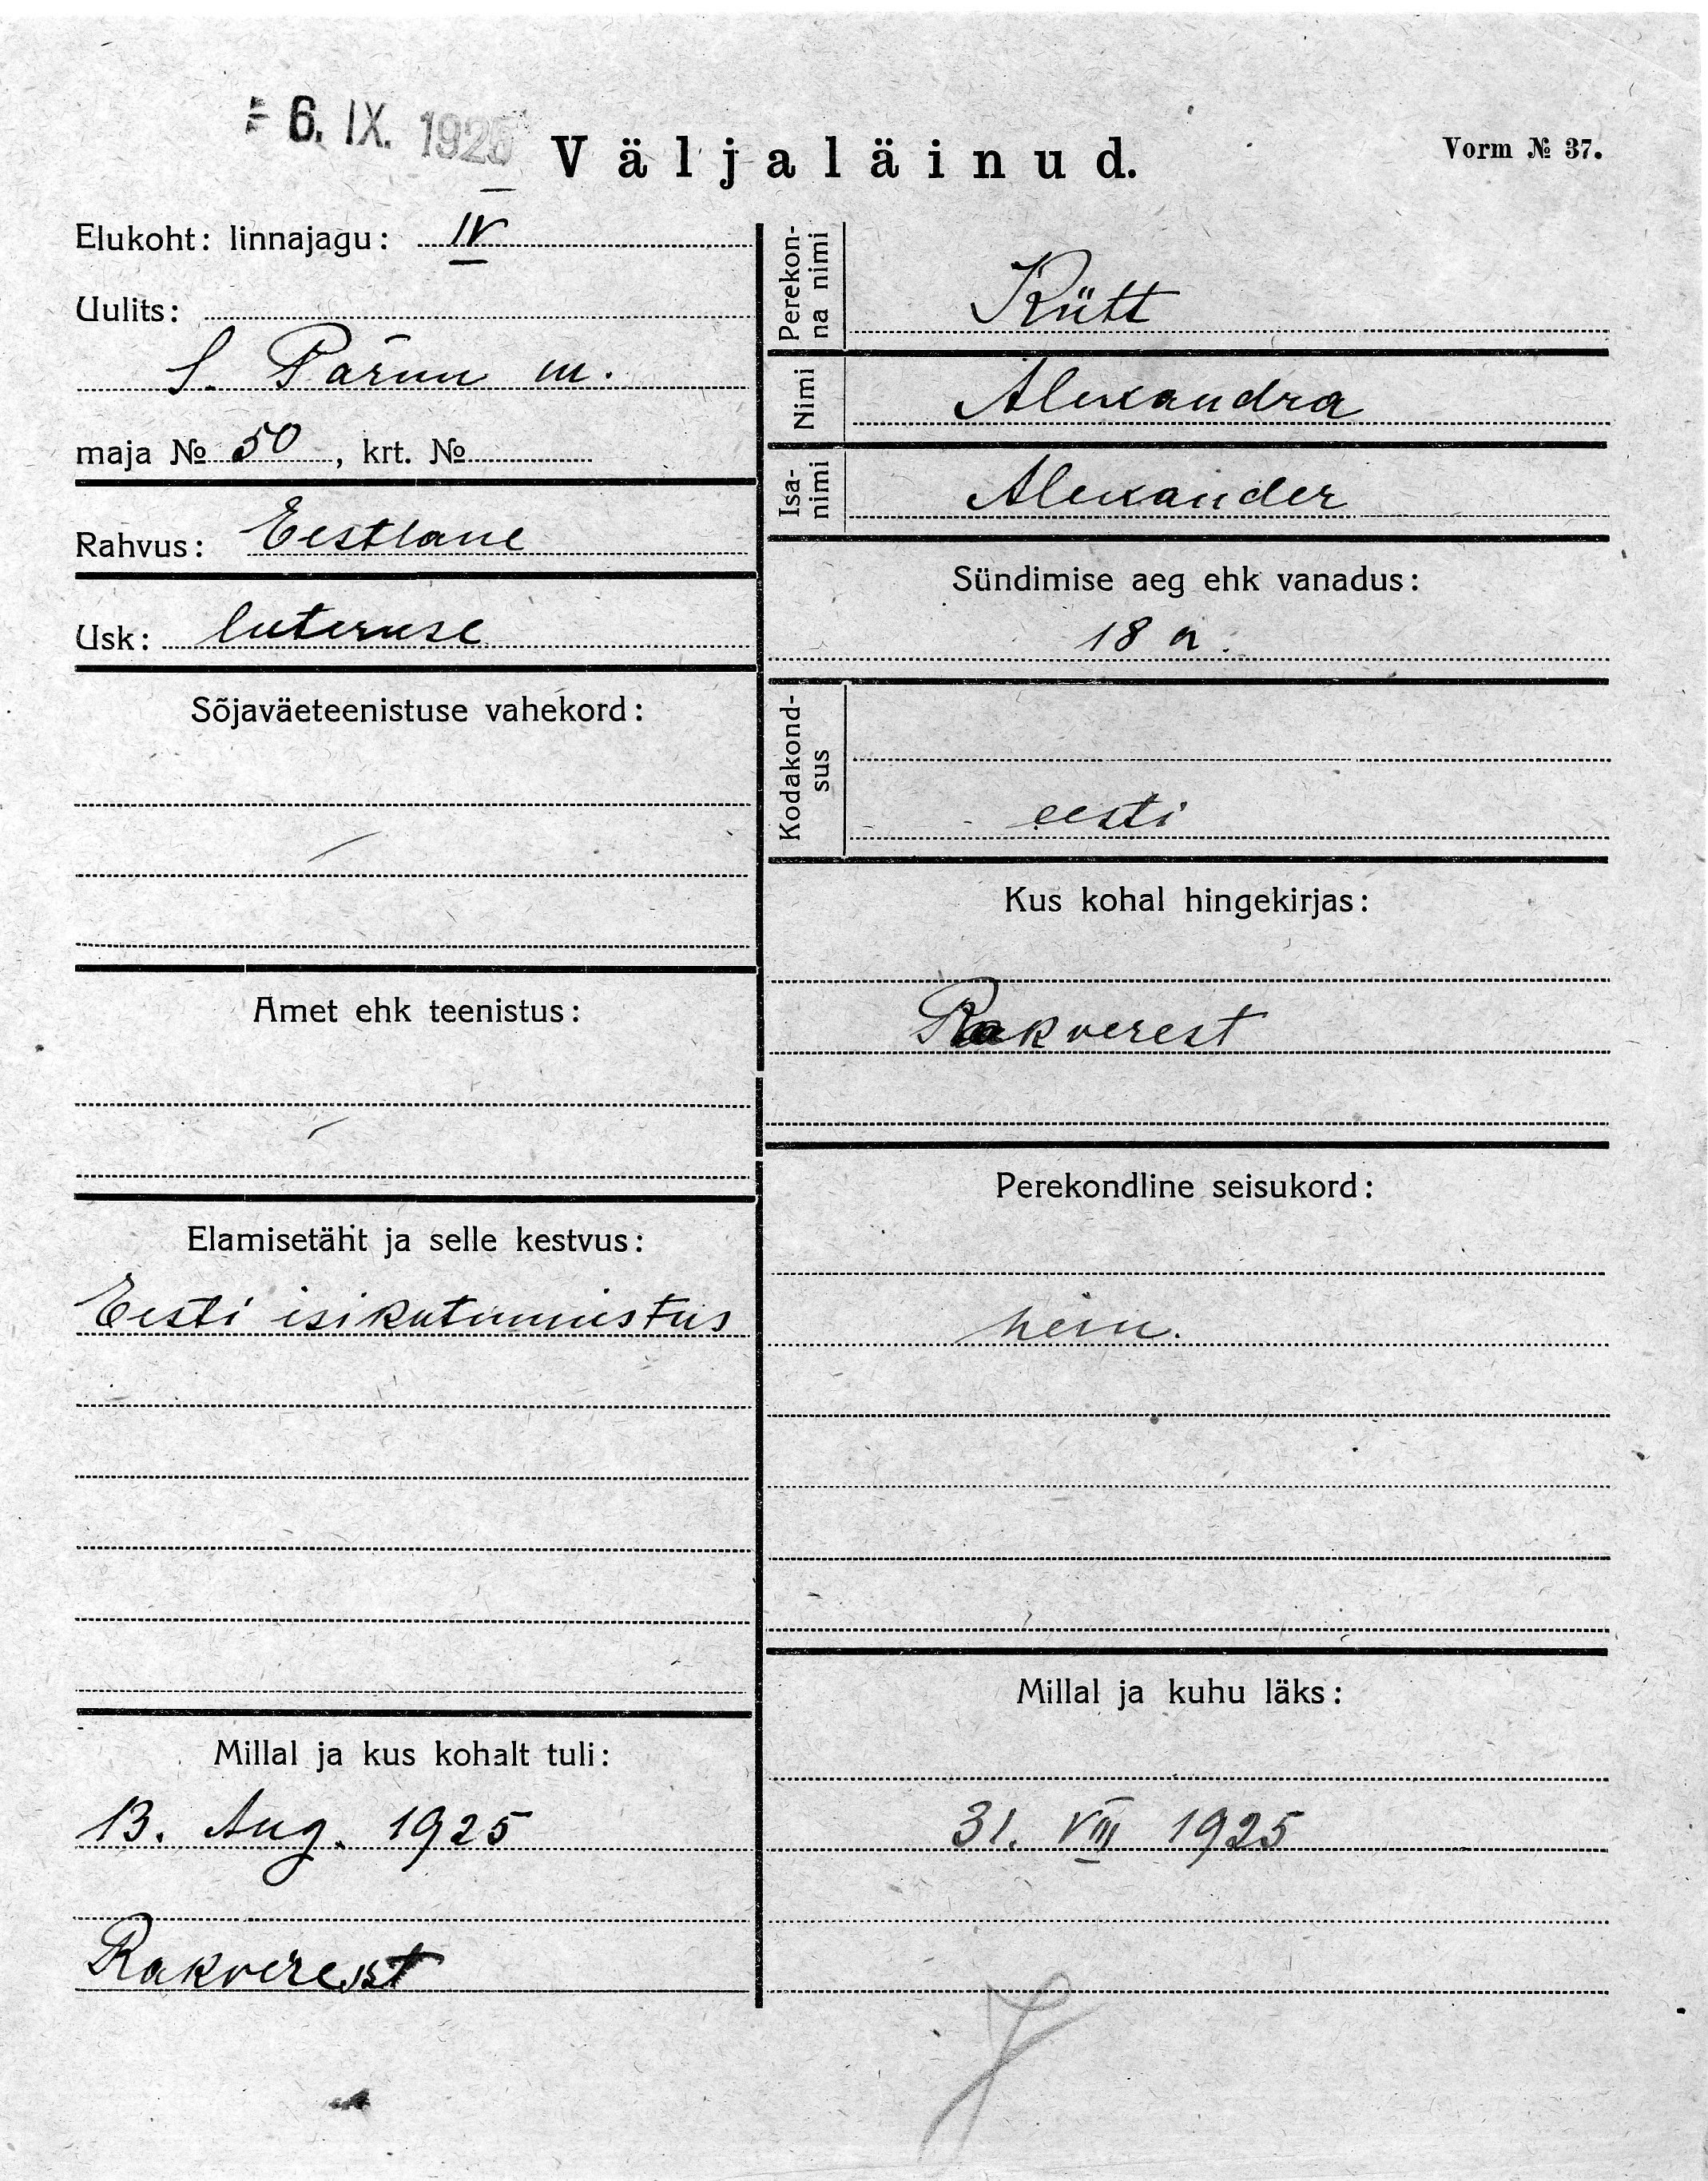 6. IX. 1925
Väljaläinud.
Vorm № 37.
Elukoht: linnajagu: IV
Uulits:
S. Pärnu m.
maja № 50, krt. №
Rahvus: Eestlane
Usk: luteruse
Sõjaväeteenistuse vahekord:
Amet ehk teenistus:
Elamisetäht ja selle kestvus:
Eesti isikutunnistus
Millal ja kus kohalt tuli:
13. Aug. 1925
Rakverest
Perekon-
na nimi
Kütt
Nimi
Alexandra
Isa-
nimi
Alexander
Sündimise aeg ehk vanadus:
18 a.
Kodakond-
sus
eesti
Kus kohal hingekirjas:
Rakverest
Perekondline seisukord:
Millal ja kuhu läks:
31. VIII 1925